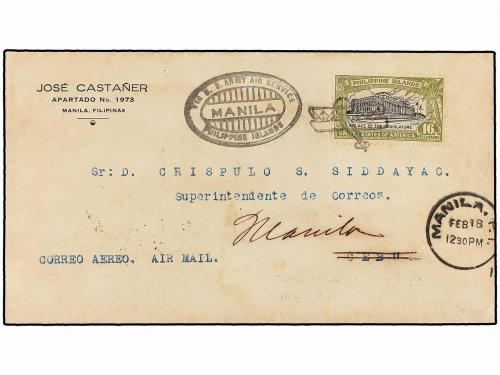 JOSÉ CASTAÑER
APARTADO No. 1973
MANILA, FILIPINAS
VIA U. S. ARMY AIR SERVICE
MANILA
PHILIPPINE ISLANDS
PHILIPPINE ISLANDS
PALACE OF THE LEGISLATURE
16 16
UNITED STATES OF AMERICA
Sr: D. CRISPULO S. SIDDAYAO.
Superintendente de Correos.
Manila
CEBU.
CORREO AEREO. AIR MAIL.
MANILA, P.
FEB 18
1230PM